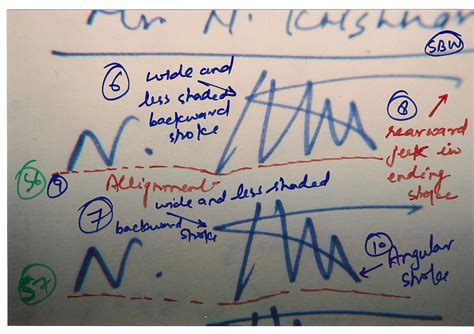 Mr. N. Krishnan
SBW
6 wide and
less shaded
backward
stroke
N.
8
rearward
jerk in
ending
stroke
S6 9
Allignment
7 wide and less shaded
backward
stroke
10
Angular
stroke
N.
S7